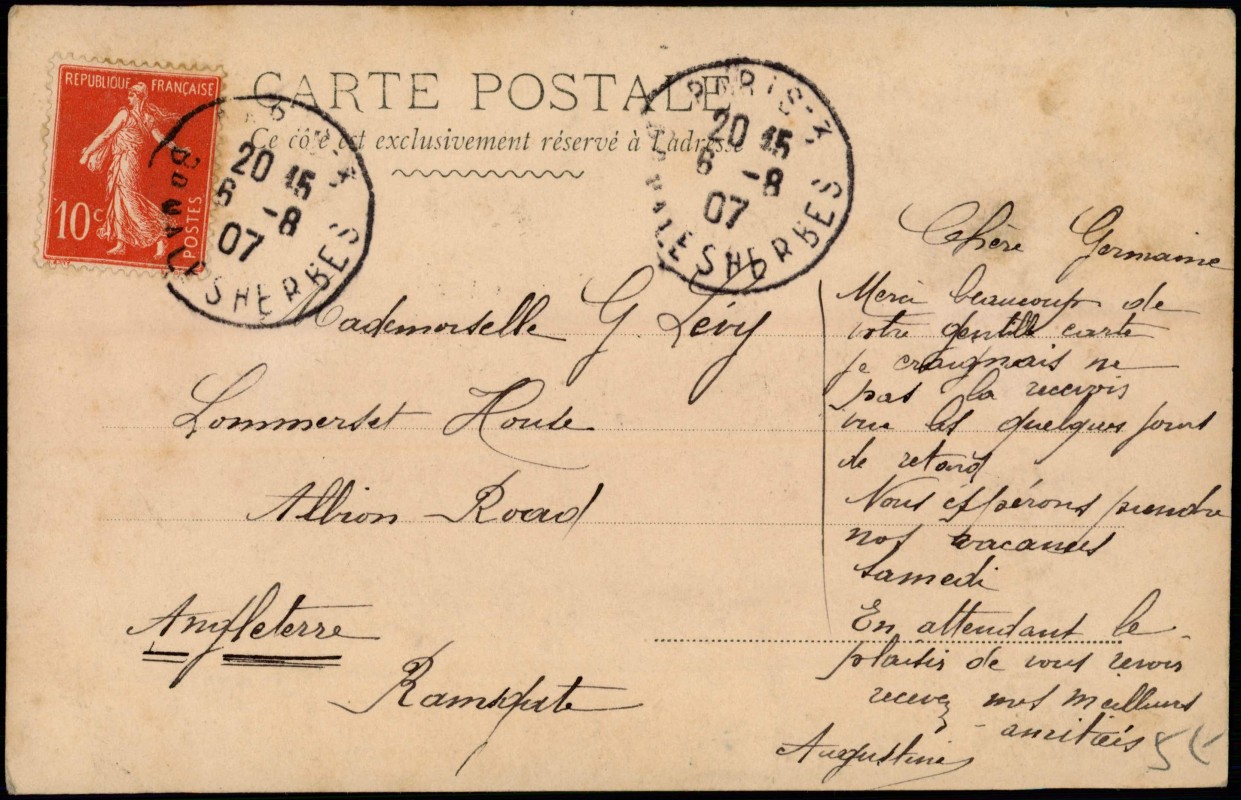 REPUBLIQUE FRANÇAISE
10c
POSTES
CARTE POSTALE
Ce côté est exclusivement réservé à l'adresse
PARIS-X
20 15
6 -8
07
BD MALESHERBES
PARIS-X
20 15
6 -8
07
BD MALESHERBES
Mademoiselle G. Lévy
Sommerset House
Albion Road
Angleterre
Ramsgate
Chère Germaine
Merci beaucoup de
votre gentille carte
je craignais ne
pas la recevoir
vu les quelques jours
de retard
Nous éspérons prendre
nos vacances
Samedi
En attendant le
plaisir de vous revoir
recevez mes meilleurs
amitiés
Augustine